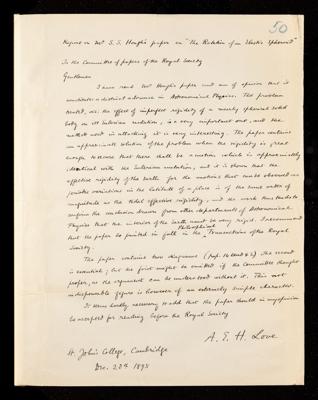 50
Report on Mr S. S. Hough's paper on "The Rotation of an Elastic Spheroid"
To the Committee of papers of the Royal Society
Gentlemen
I have read Mr Hough's paper and am of opinion that it
constitutes a distinct advance in Astronomical Physics. The problem
treated, viz: the effect of imperfect rigidity of a nearly spherical solid
body on its Eulerian nutation, is a very important one, and the
method used in attacking it is very interesting. The paper contains
an approximate solution of the problem when the rigidity is great
enough to ensure that there shall be a motion which is approximately
identical with the Eulerian nutation, and it is shown that the
effective rigidity of the Earth for the motions that could be observed as
periodic variations in the latitude of a place is of the same order of
magnitude as the tidal effective rigidity, and the work thus tends to
confirm the conclusion drawn from other departments of Astronomical
Physics that the interior of the Earth must be very rigid. I recommend
that the paper be printed in full in the Philosophical Transactions of the Royal
Society.
The paper contains two diagrams (pp. 16 and 27). The second
is essential; but the first might be omitted if the Committee thought
proper, as the argument can be understood without it. This not
indispensable figure is however of an extremely simple character.
It seems hardly necessary to add that the paper should in my opinion
be accepted for reading before the Royal Society
A. E. H. Love
St. John's College, Cambridge
Dec. 20th 1895